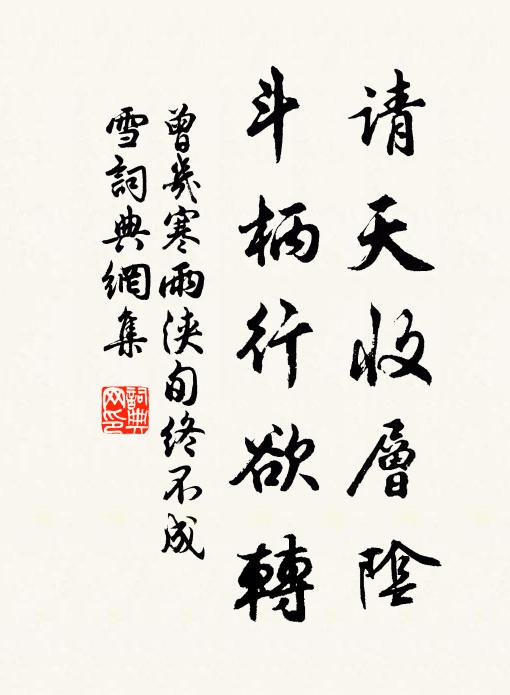 请天收層陰
斗柄行欲轉
曾幾寒雨浹旬終不成
雪詞典網集
詞典网印